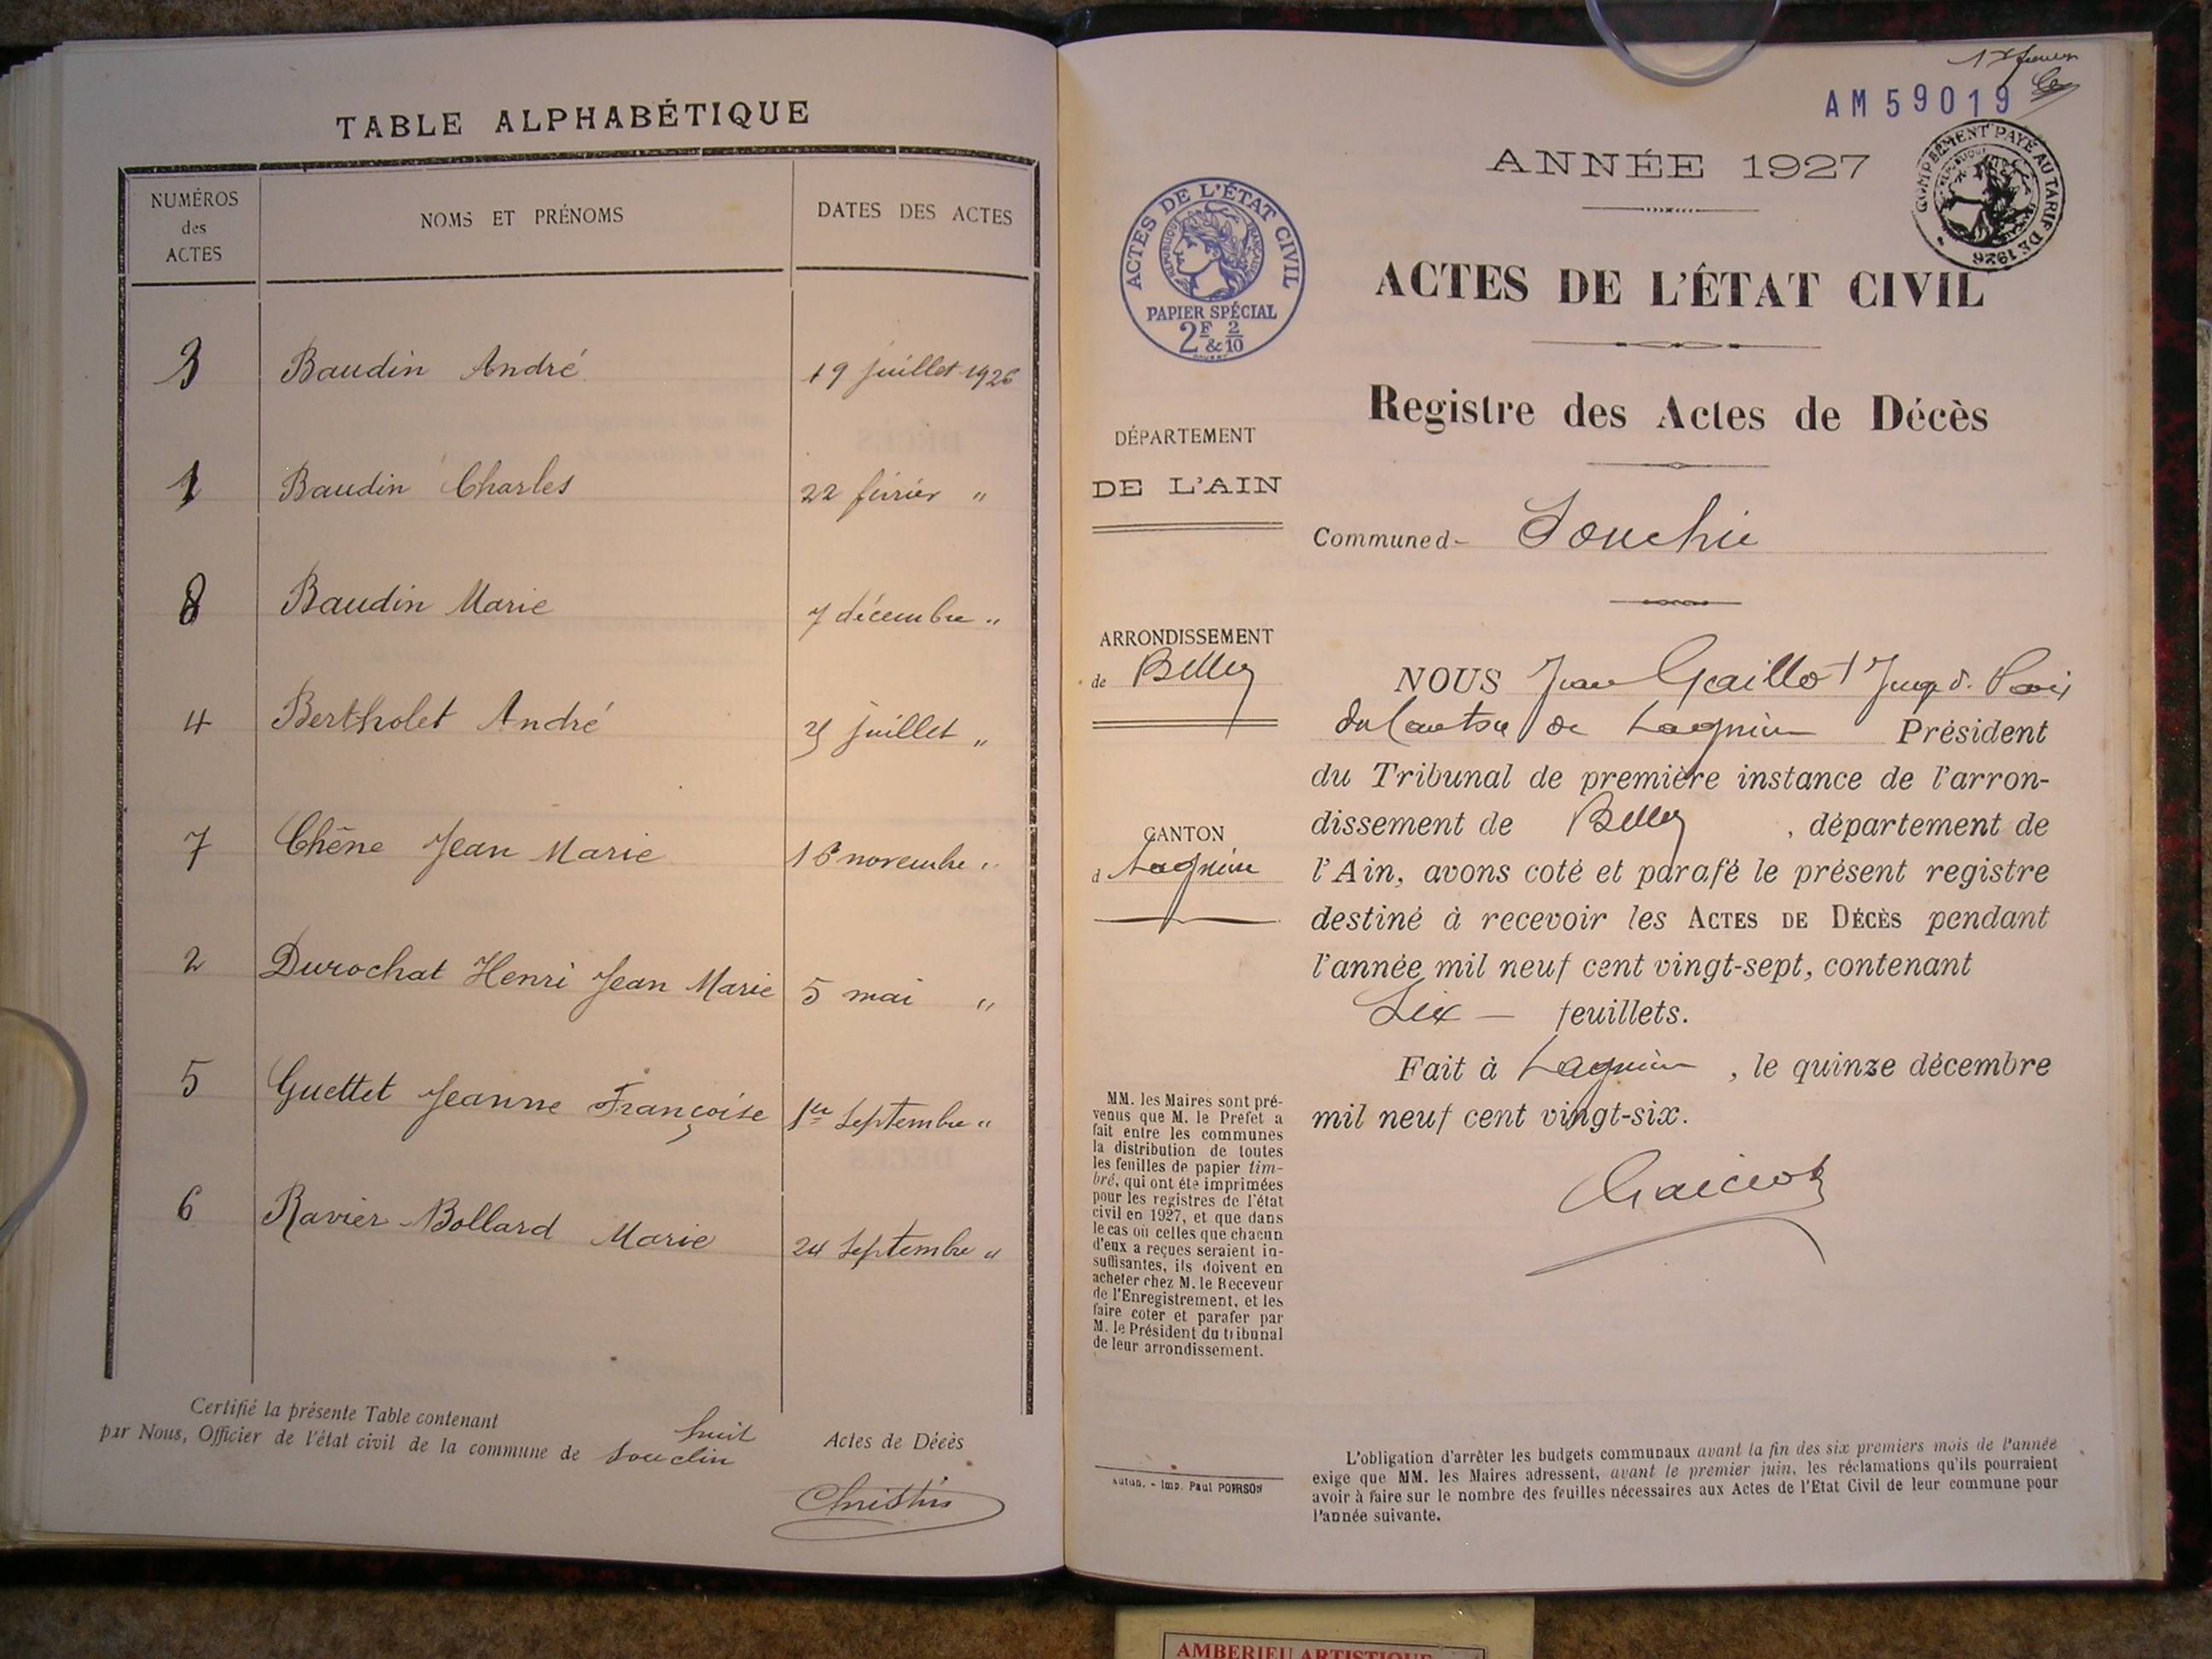 TABLE ALPHABÉTIQUE
NUMÉROS des ACTES NOMS ET PRÉNOMS DATES DES ACTES
3 Baudin André 19 juillet 1926
1 Baudin Charles 22 février "
8 Baudin Marie 7 décembre "
4 Bertholet André juillet "
7 Chêne Jean Marie 16 novembre "
2 Durochat Henri Jean Marie 5 mai "
5 Guettet Jeanne Françoise 1er Septembre "
6 Ravier-Bollard Marie 24 Septembre "
Certifié la présente Table contenant huit Actes de Décès
par Nous, Officier de l'état civil de la commune de Souclin
AM 59019
COMPLÉMENT PAYÉ AU TARIF DE 1926
ANNÉE 1927
ACTES DE L'ÉTAT CIVIL
RÉPUBLIQUE FRANÇAISE
PAPIER SPÉCIAL
2F & 2/10
ACTES DE L'ÉTAT CIVIL
Registre des Actes de Décès
DÉPARTEMENT
DE L'AIN
Commune d Souclin
ARRONDISSEMENT
de Belley
CANTON
d Lagnieu
NOUS Jean Gaillot Juge d. Paix
du Canton de Lagnieu Président
du Tribunal de première instance de l'arron-
dissement de Belley , département de
l'Ain, avons coté et parafé le présent registre
destiné à recevoir les ACTES DE DÉCÈS pendant
l'année mil neuf cent vingt-sept, contenant
Six — feuillets.
Fait à Lagnieu , le quinze décembre
mil neuf cent vingt-six.
MM. les Maires sont pré-
venus que M. le Préfet a
fait entre les communes
la distribution de toutes
les feuilles de papier tim-
bré, qui ont été imprimées
pour les registres de l'état
civil en 1927, et que dans
le cas où celles que chacun
d'eux a reçues seraient in-
suffisantes, ils doivent en
acheter chez M. le Receveur
de l'Enregistrement, et les
faire coter et parafer par
M. le Président du tribunal
de leur arrondissement.
Autun. - Imp. Paul POIRSON
L'obligation d'arrêter les budgets communaux avant la fin des six premiers mois de l'année
exige que MM. les Maires adressent, avant le premier juin, les réclamations qu'ils pourraient
avoir à faire sur le nombre des feuilles nécessaires aux Actes de l'Etat Civil de leur commune pour
l'année suivante.
AMBERIEU ARTISTIQUE